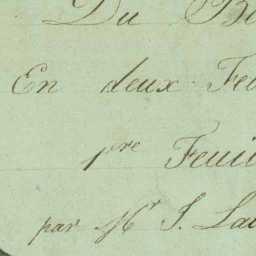 Du B
En deux Feu
1re Feuil
par Mr J. Lau